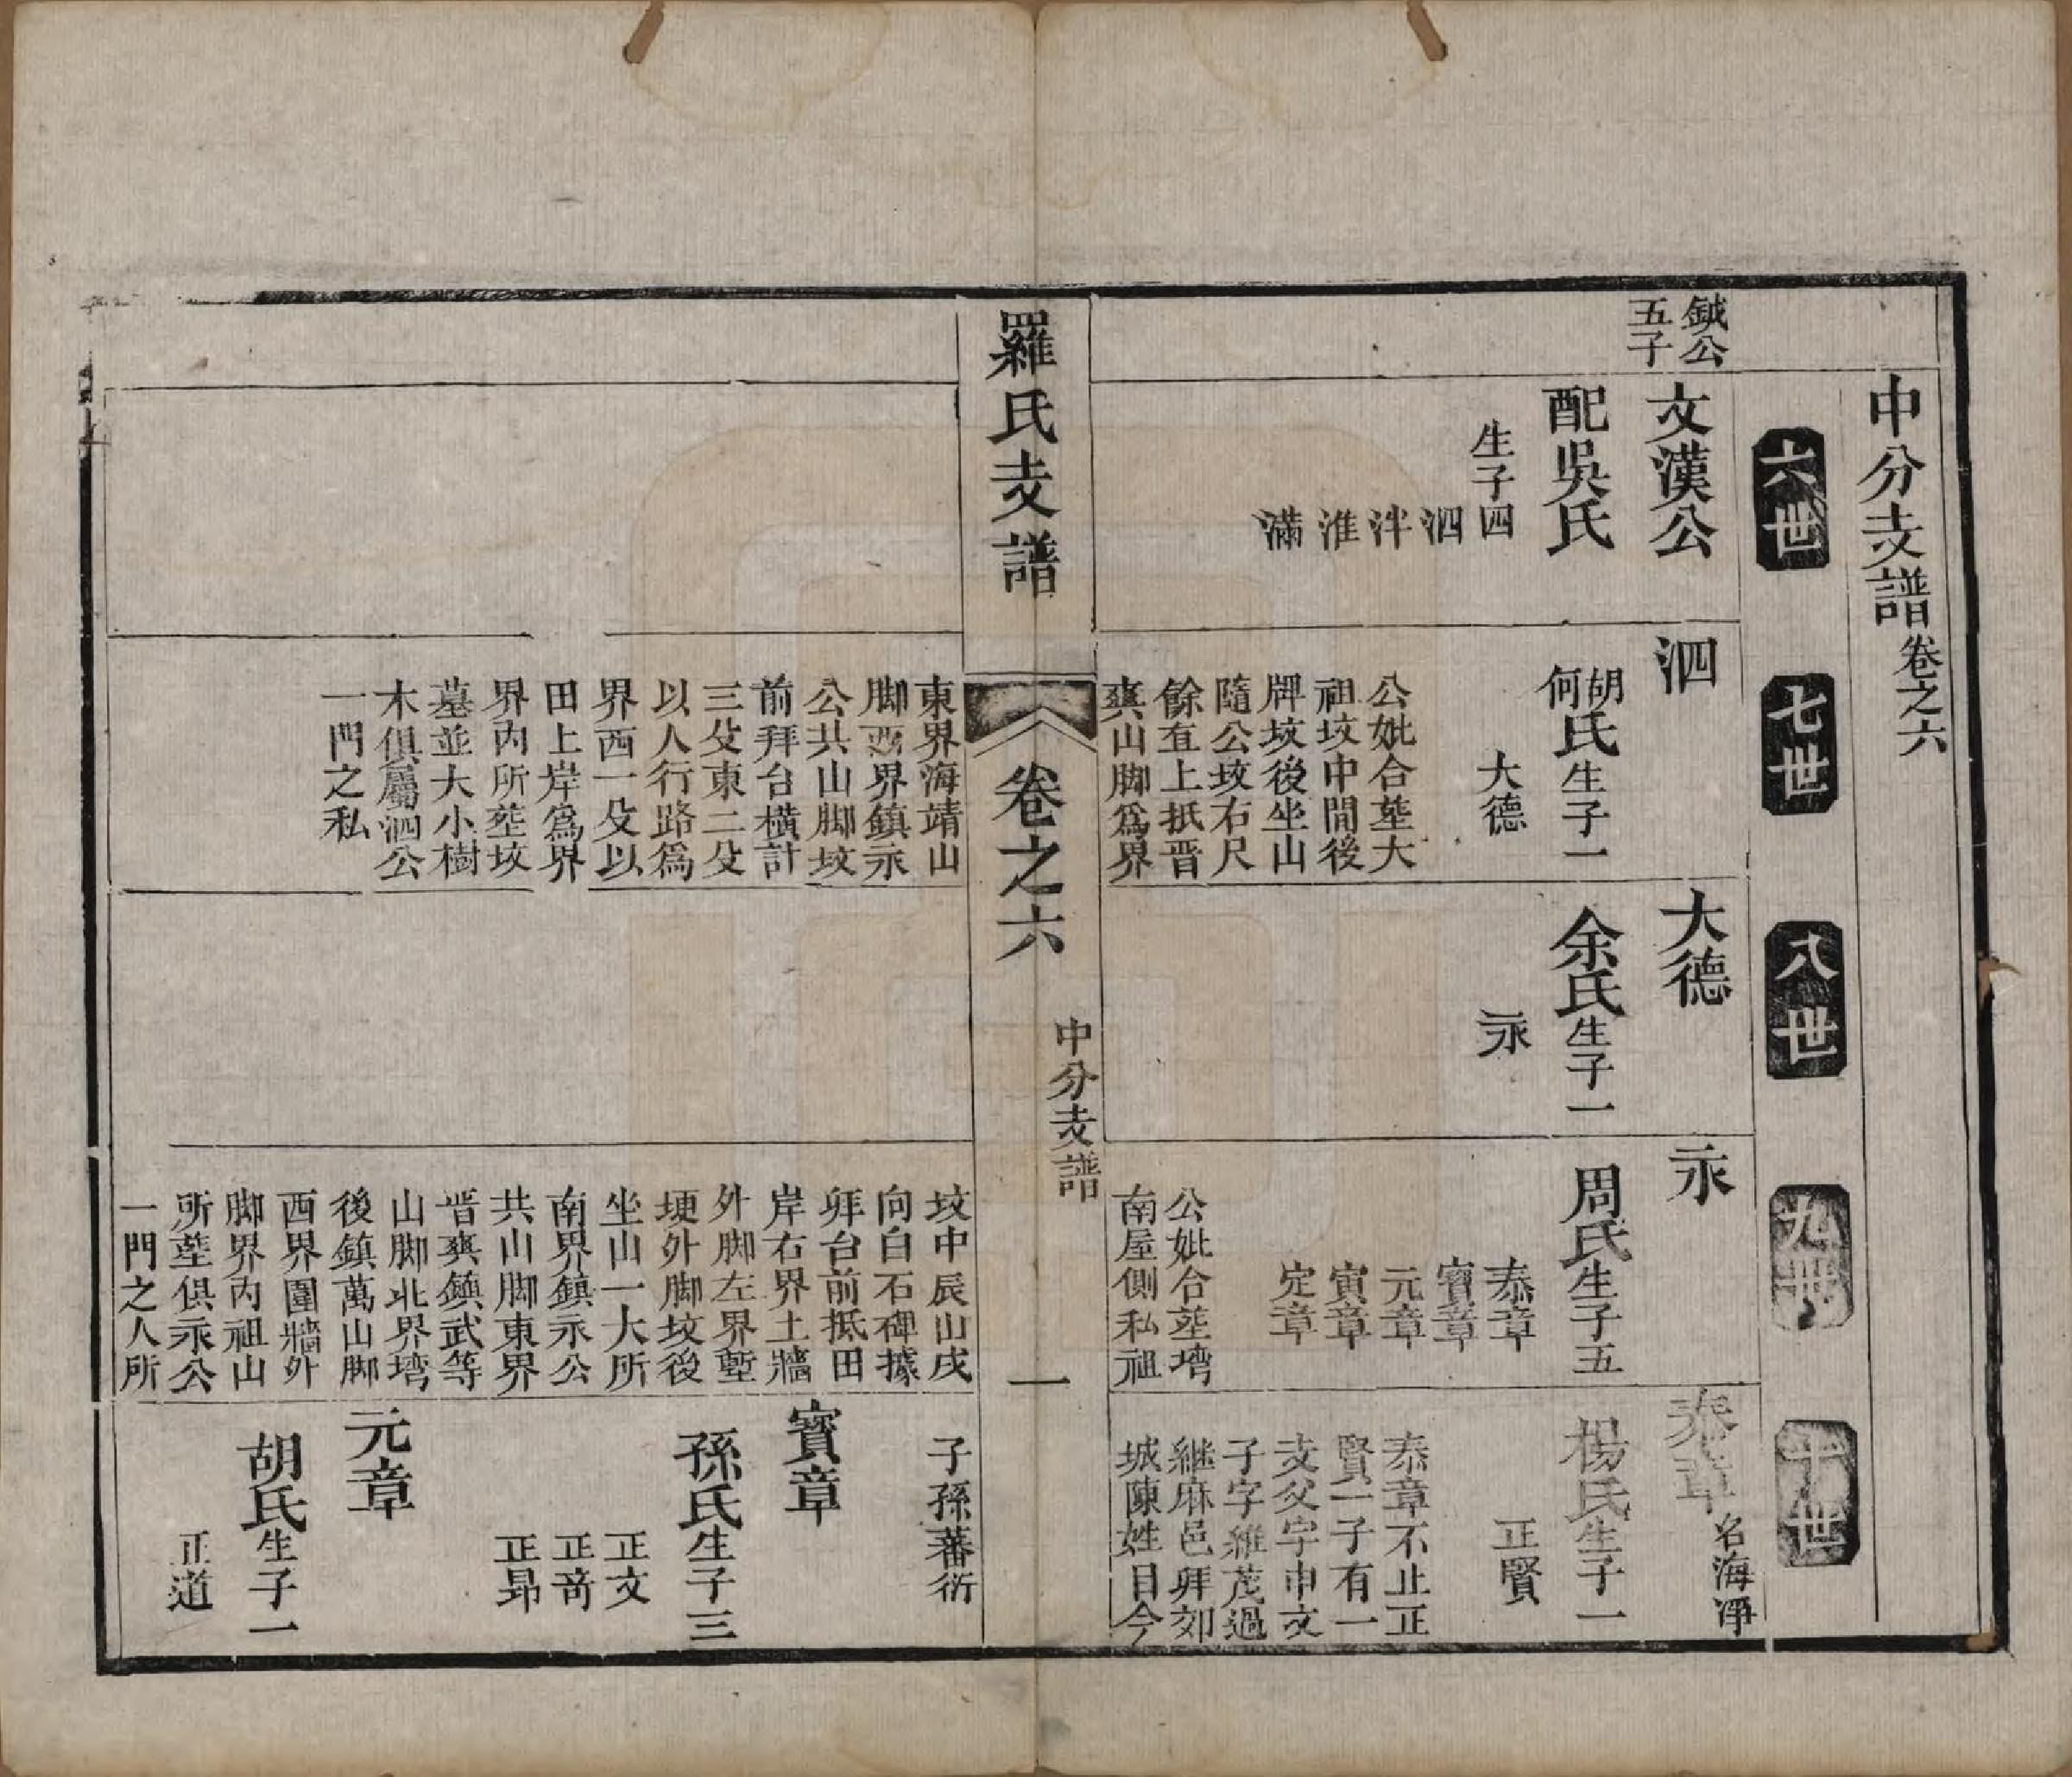 中分支譜卷之六
六世
七世
八世
九世
十世
鋮公
五子
文漢公
配吳氏
生子四
泗
泮
淮
滿
泗
胡何氏生子一
大德
公妣合塟大
祖坟中間後
牌坟後坐山
隨公坟右尺
餘直上抵晋
爽山脚爲界
大德
余氏生子一
永
永
周氏生子五
泰章
寶章
元章
寅章
定章
公妣合塟塆
南屋側私祖
泰章名海淨
楊氏生子一
正賢
泰章不止正
賢一子有一
支父字申文
子字維茂過
継麻邑拜郊
城陳姓目今
羅氏支譜
卷之六
中分支譜
一
東界海靖山
脚西界鎮永
公共山脚坟
前拜台橫計
三殳東二殳
以人行路爲
界西一殳以
田上岸爲界
界內所塟坟
墓並大小樹
木俱屬泗公
一門之私
坟中辰山戌
向白石碑據
拜台前抵田
岸右界土牆
外脚左界塹
埂外脚坟後
坐山一大所
南界鎮永公
共山脚東界
晋爽鎮武等
山脚北界塆
後鎮萬山脚
西界圍牆外
脚界內祖山
所塟俱永公
一門之人所
子孫蕃衍
寶章
孫氏生子三
正文
正奇
正昂
元章
胡氏生子一
正道